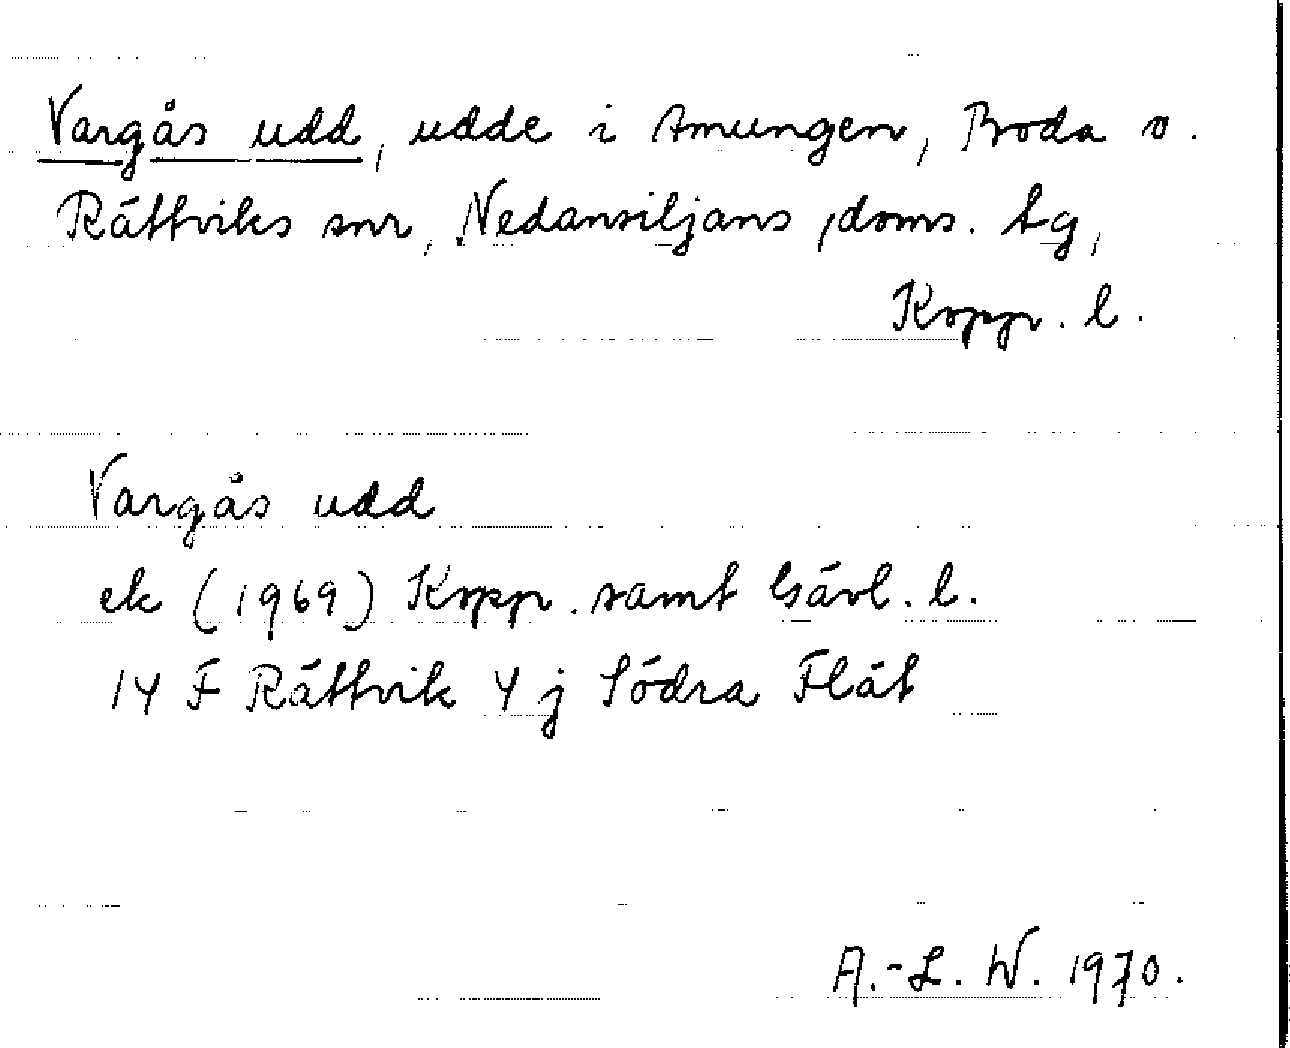 Vargås udd, udde i Amungen, Boda o.
Rättviks snr, Nedansiljans doms. tg,
Kopp. l.
Vargås udd
ek (1969) Kopp. samt Gävl. l.
14 F Rättvik 4 j Södra Flät
A.-L. W. 1970.